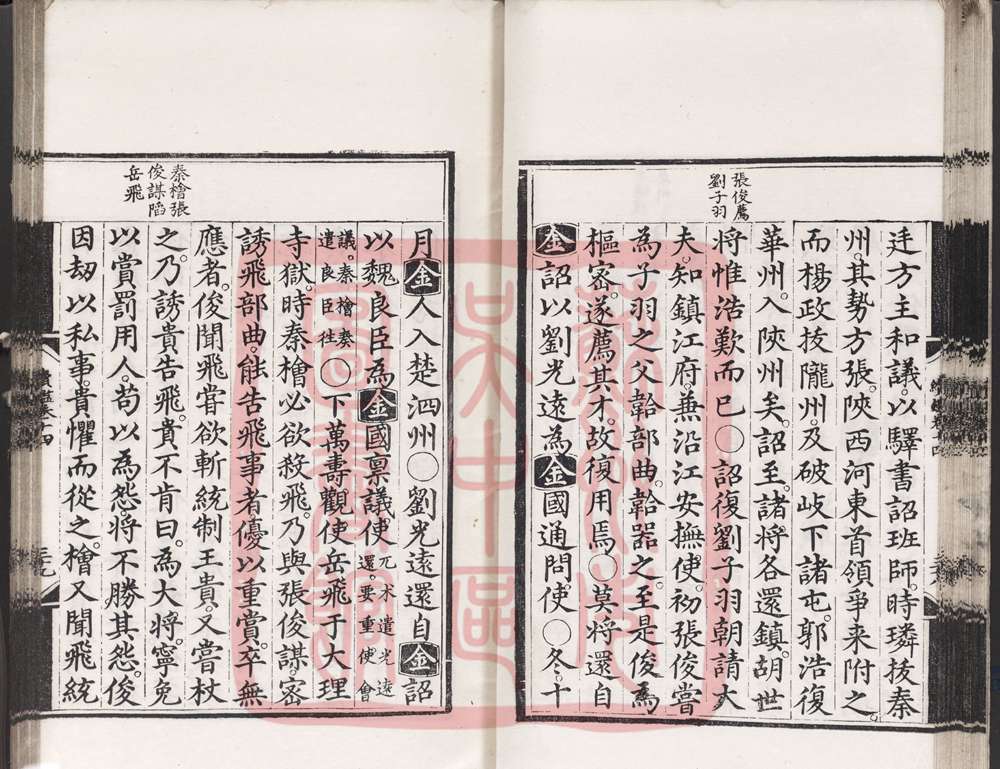 張俊薦
劉子羽
廷方主和議。以驛書詔班師。時璘拔秦
州。其勢方張。陝西河東首領爭來附之。
而楊政拔隴州。及破岐下諸屯。郭浩復
華州。入陝州矣。詔至。諸將各還鎮。胡世
將惟浩歎而已○詔復劉子羽朝請大
夫。知鎮江府。兼沿江安撫使。初張俊嘗
為子羽之父韐部曲。韐器之。至是俊為
樞密。遂薦其才。故復用焉。○莫將還自
金○詔以劉光遠為金國通問使○冬。十
秦檜張
俊謀陷
岳飛
月金人入楚泗州○劉光遠還自金詔
以魏良臣為金國稟議使兀术遣光遠
還。要重使會
議。秦檜奏
遣良臣往○下萬壽觀使岳飛于大理
寺獄。時秦檜必欲殺飛。乃與張俊謀。密
誘飛部曲。能告飛事者。優以重賞。卒無
應者。俊聞飛嘗欲斬統制王貴。又嘗杖
之。乃誘貴告飛。貴不肯曰。為大將。寧免
以賞罰用人。苟以為怨。將不勝其怨。俊
因劫以私事。貴懼而從之。檜又聞飛統